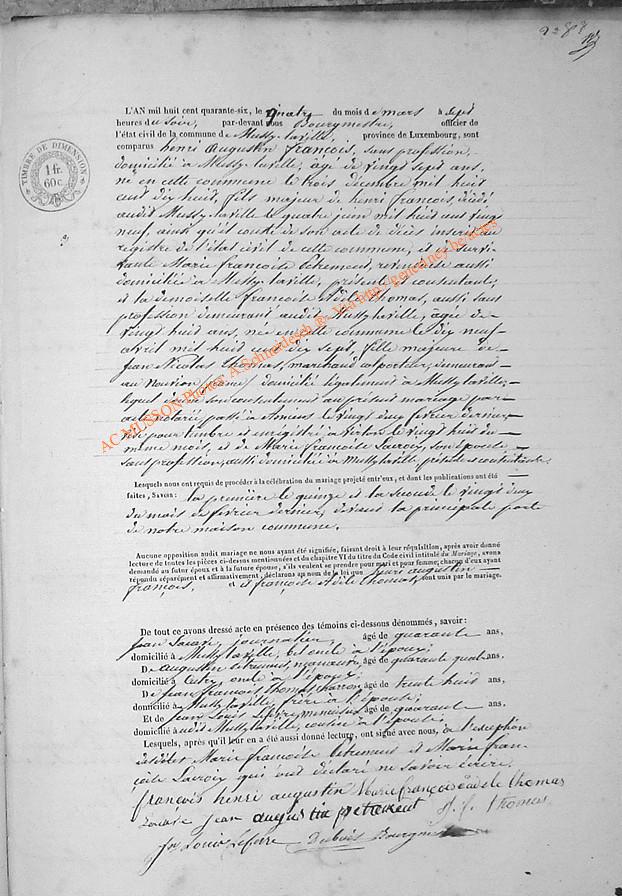 2283
L'AN mil huit cent quarante-six, le quatre du mois de mars à sept
heures du soir, par-devant nous Bourgmestre, officier de
l'état civil de la commune de Mussy-laville, province de Luxembourg, sont
comparus henri Augustin françois, sans profession,
domicilié à Mussy-laville, âgé de vingt sept ans,
né en cette commune le trois décembre mil huit
cent dix huit, fils majeur de henri françois, décédé
audit Mussy-laville le quatre juin mil huit cent vingt
neuf, ainsi qu'il conste de son acte de décès inscrit au
registre de l'état civil de cette commune, et de
Marie françoise Pétrement, aussi
domiciliée à Mussy-laville, présente et consentante;
et la demoiselle françoise Adèle Thomas, aussi sans
profession demeurant audit Mussy-laville, âgée de
vingt huit ans, née en cette commune le dix neuf
avril mil huit cent dix sept, fille majeure de
jean Nicolas Thomas, marchand colporteur, demeurant
au Nouvion domicilié légalement à Mussy-laville,
lequel a donné son consentement au présent mariage par
acte notarié passé à Amiens le vingt deux février dernier,
visé pour timbre et enregistré à virton le vingt huit du
même mois, et de Marie françoise Lacroix, son épouse
sans profession, aussi domiciliée à Mussy-laville présente et consentante.
Lesquels nous ont requis de procéder à la célébration du mariage projeté entr'eux, et dont les publications ont été
faites, SAVOIR: la première le quinze et la seconde le vingt deux
du mois de février dernier, devant la principale porte
de notre maison commune.
Aucune opposition audit mariage ne nous ayant été signifiée, faisant droit à leur réquisition, après avoir donné
lecture de toutes les pièces ci-dessus mentionnées et du chapitre VI du titre du Code civil intitulé du Mariage, avons
demandé au futur époux et à la future épouse, s'ils veulent se prendre pour mari et pour femme; chacun d'eux ayant
répondu séparément et affirmativement, déclarons au nom de la loi que henri augustin
françois, et françoise Adèle thomas, sont unis par le mariage.
De tout ce avons dressé acte en présence des témoins ci-dessous dénommés, savoir:
jean journalier, âgé de quarante ans,
domicilié à Mussy-laville, bel oncle à l'époux;
De Augustin Pétrement, manœuvre, âgé de quarante quatre ans,
domicilié à oncle à l'époux;
De jean françois thomas, charron, âgé de trente huit ans,
domicilié à Mussy-laville, frère à l'épouse;
Et de jean Louis Lefèvre, menuisier, âgé de quarante ans,
domicilié audit Mussy-laville, cousin à l'épouse;
Lesquels, après qu'il leur en a été aussi donné lecture, ont signé avec nous, à l'exception
desdites Marie françoise Pétrement et Marie fran-
çoise Lacroix qui ont déclaré ne savoir écrire.
françois henri augustin Marie françoise adele thomas
jean augustin petrement J. f. thomas
Jn Louis Lefevre Bourgmestre
TIMBRE DE DIMENSION
1 fr.
60c
AC MUSSON Photos A.Schneidesch ® - Via http://geneanney.be/actes